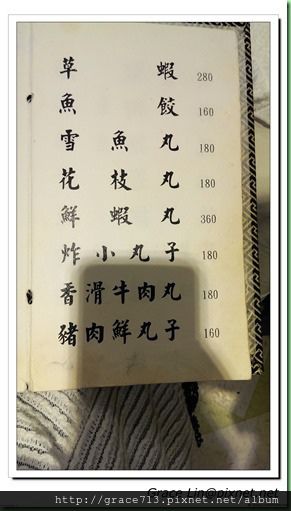 草蝦 280
魚餃 160
雪魚丸 180
花枝丸 180
鮮蝦丸 360
炸小丸子 180
香滑牛肉丸 180
豬肉鮮丸子 160
Grace Lin@pixnet.net
http://grace713.pixnet.net/album